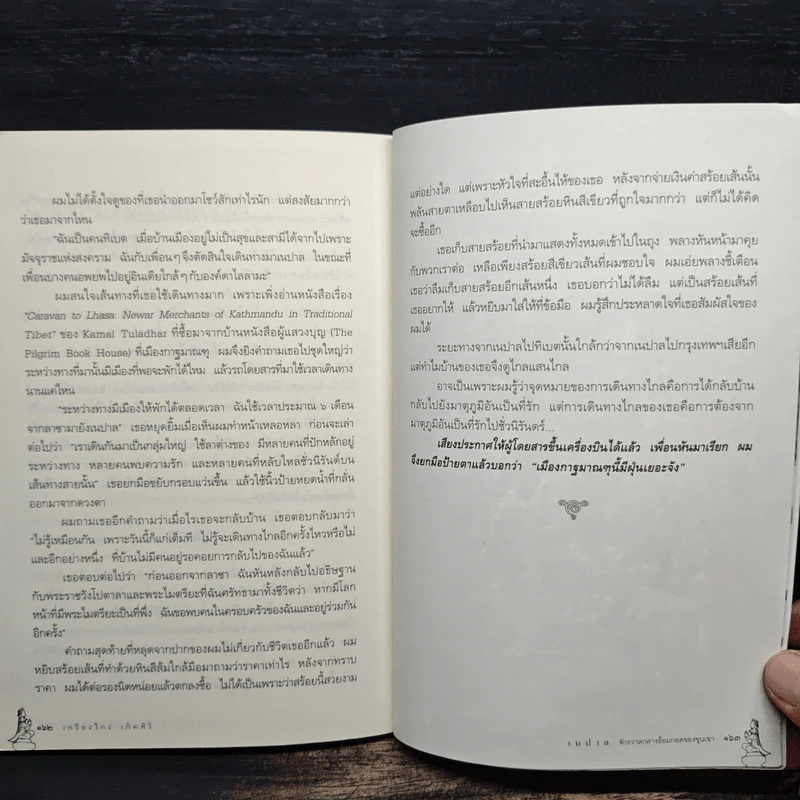 ผมไม่ได้ตั้งใจดูของที่เธอนำออกมาโชว์สักเท่าไรนัก แต่สงสัยมากกว่า
ว่าเธอมาจากไหน
"ฉันเป็นคนทิเบต เมื่อบ้านเมืองอยู่ไม่เป็นสุขและสามีได้จากไปเพราะ
มัจจุราชแห่งสงคราม ฉันกับเพื่อนๆ จึงตัดสินใจเดินทางมาเนปาล ในขณะที่
เพื่อนบางคนอพยพไปอยู่อินเดียใกล้ๆ กับองค์ดาไลลามะ"
ผมสนใจเส้นทางที่เธอใช้เดินทางมาก เพราะเพิ่งอ่านหนังสือเรื่อง
"Caravan to Lhasa: Newar Merchants of Kathmandu in Traditional
Tibet" ของ Kamal Tuladhar ที่ซื้อมาจากบ้านหนังสือผู้แสวงบุญ (The
Pilgrim Book House) ที่เมืองกาฐมาณฑุ ผมจึงยิงคำถามเธอไปชุดใหญ่ว่า
ระหว่างทางที่มานั้นมีเมืองที่พอจะพักได้ไหม แล้วรถโดยสารที่มาใช้เวลาเดินทาง
นานแค่ไหน
"ระหว่างทางมีเมืองให้พักได้ตลอดเวลา ฉันใช้เวลาประมาณ ๖ เดือน
จากลาซามายังเนปาล" เธอหยุดยิ้มเมื่อเห็นผมทำหน้าเหลอหลา ก่อนจะเล่า
ต่อไปว่า "เราเดินกันมาเป็นกลุ่มใหญ่ ใช้ลาต่างของ มีหลายคนที่ปักหลักอยู่
ระหว่างทาง หลายคนพบความรัก และหลายคนที่หลับใหลชั่วนิรันดร์บน
เส้นทางสายนั้น" เธอยกมือขยับกรอบแว่นขึ้น แล้วใช้นิ้วป้ายหยดน้ำที่กลั่น
ออกมาจากดวงตา
ผมถามเธออีกคำถามว่าเมื่อไรเธอจะกลับบ้าน เธอตอบกลับมาว่า
"ไม่รู้เหมือนกัน เพราะวันนี้ก็แก่เต็มที ไม่รู้จะเดินทางไกลอีกครั้งไหวหรือไม่
และอีกอย่างหนึ่ง ที่บ้านไม่มีคนอยู่รอคอยการกลับไปของฉันแล้ว"
เธอตอบต่อไปว่า "ก่อนออกจากลาซา ฉันหันหลังกลับไปอธิษฐาน
กับพระราชวังโปตาลาและพระไมตรียะที่ฉันศรัทธามาทั้งชีวิตว่า หากมีโลก
หน้าที่มีพระไมตรียะเป็นที่พึ่ง ฉันขอพบคนในครอบครัวของฉันและอยู่ร่วมกัน
อีกครั้ง"
คำถามสุดท้ายที่หลุดจากปากของผมไม่เกี่ยวกับชีวิตเธออีกแล้ว ผม
หยิบสร้อยเส้นที่ทำด้วยหินสีส้มใกล้มือมาถามว่าราคาเท่าไร หลังจากทราบ
ราคา ผมได้ต่อรองนิดหน่อยแล้วตกลงซื้อ ไม่ได้เป็นเพราะว่าสร้อยนี้สวยงาม
๑๖๒ เกรียงไกร เกิดศิริ
แต่อย่างใด แต่เพราะหัวใจที่สะอื้นไห้ของเธอ หลังจากจ่ายเงินค่าสร้อยเส้นนั้น
พลันสายตาเหลือบไปเห็นสายสร้อยหินสีเขียวที่ถูกใจมากกว่า แต่ก็ไม่ได้คิด
จะซื้ออีก
เธอเก็บสายสร้อยที่นำมาแสดงทั้งหมดเข้าไปในถุง พลางหันหน้ามาคุย
กับพวกเราต่อ เหลือเพียงสร้อยสีเขียวเส้นที่ผมชอบใจ ผมเอ่ยพลางชี้เตือน
เธอว่าลืมเก็บสายสร้อยอีกเส้นหนึ่ง เธอบอกว่าไม่ได้ลืม แต่เป็นสร้อยเส้นที่
เธออยากให้ แล้วหยิบมาใส่ให้ที่ข้อมือ ผมรู้สึกประหลาดใจที่เธอสัมผัสใจของ
ผมได้
ระยะทางจากเนปาลไปทิเบตนั้นใกล้กว่าจากเนปาลไปกรุงเทพฯเสียอีก
แต่ทำไมบ้านของเธอจึงดูไกลแสนไกล
อาจเป็นเพราะผมรู้ว่าจุดหมายของการเดินทางไกลคือการได้กลับบ้าน
กลับไปยังมาตุภูมิอันเป็นที่รัก แต่การเดินทางไกลของเธอคือการต้องจาก
มาตุภูมิอันเป็นที่รักไปชั่วนิรันดร์...
เสียงประกาศให้ผู้โดยสารขึ้นเครื่องบินได้แล้ว เพื่อนหันมาเรียก ผม
จึงยกมือป้ายตาแล้วบอกว่า "เมืองกาฐมาณฑุนี้มีฝุ่นเยอะจัง"
เนปาล จักรวาลกลางอ้อมกอดของขุนเขา ๑๖๓